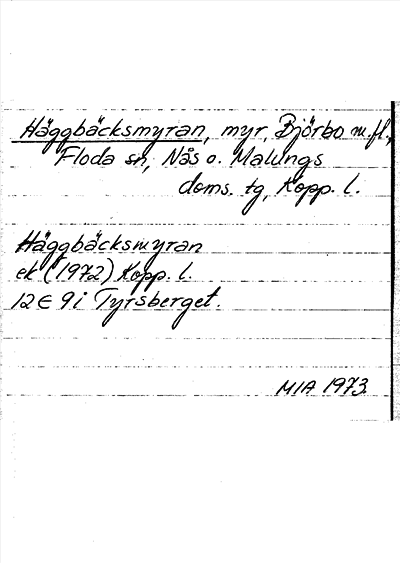 Häggbäcksmyran, myr, Björbo m.fl.,
Floda sn, Nås o. Malungs
doms. tg, Kopp. l.
Häggbäcksmyran
ek (1972) Kopp. l.
12E 9i Tyrsberget.
MIA 1973